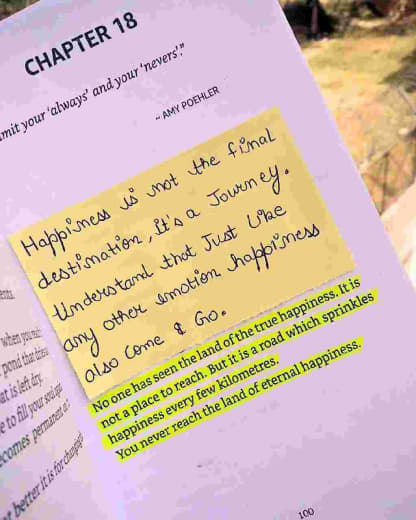 CHAPTER 18
mit your 'always' and your 'nevers'."
~ AMY POEHLER
Happiness is not the final
destination, it's a Journey.
Understand that Just Like
any other emotion happiness
also Come & Go.
No one has seen the land of the true happiness. It is
not a place to reach. But it is a road which sprinkles
happiness every few kilometres.
You never reach the land of eternal happiness.
100
when you
pond that
at is left dry.
e to fill your soul
ecomes permanent
better it is for